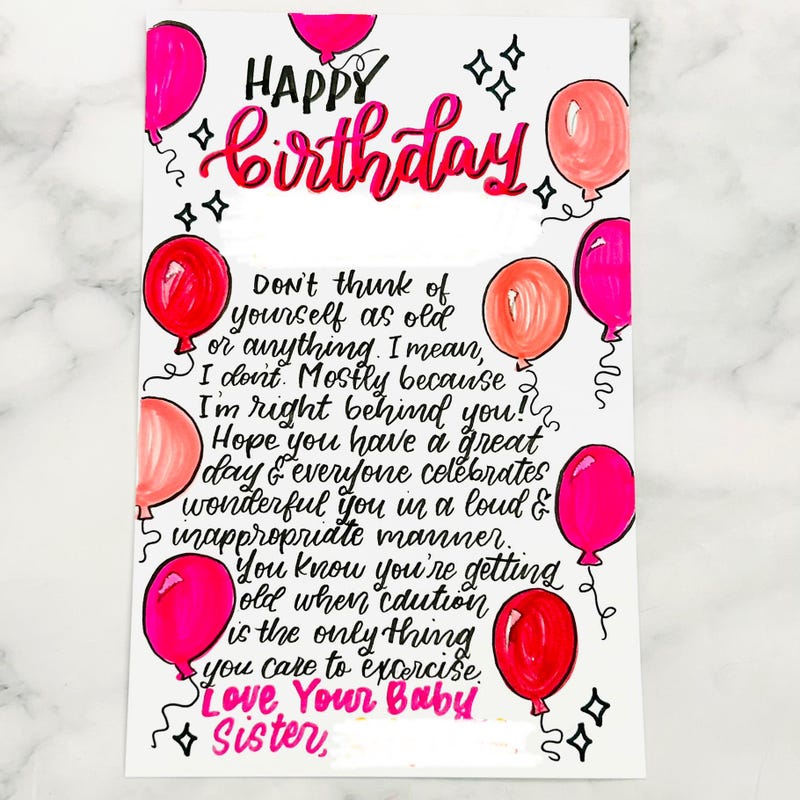 HAPPY
birthday
Don't think of
yourself as old
or anything. I mean,
I don't. Mostly because
I'm right behind you!
Hope you have a great
day & everyone celebrates
wonderful you in a loud &
inappropriate manner.
You know you're getting
old when caution
is the only thing
you care to excercise.
Love Your Baby
Sister,